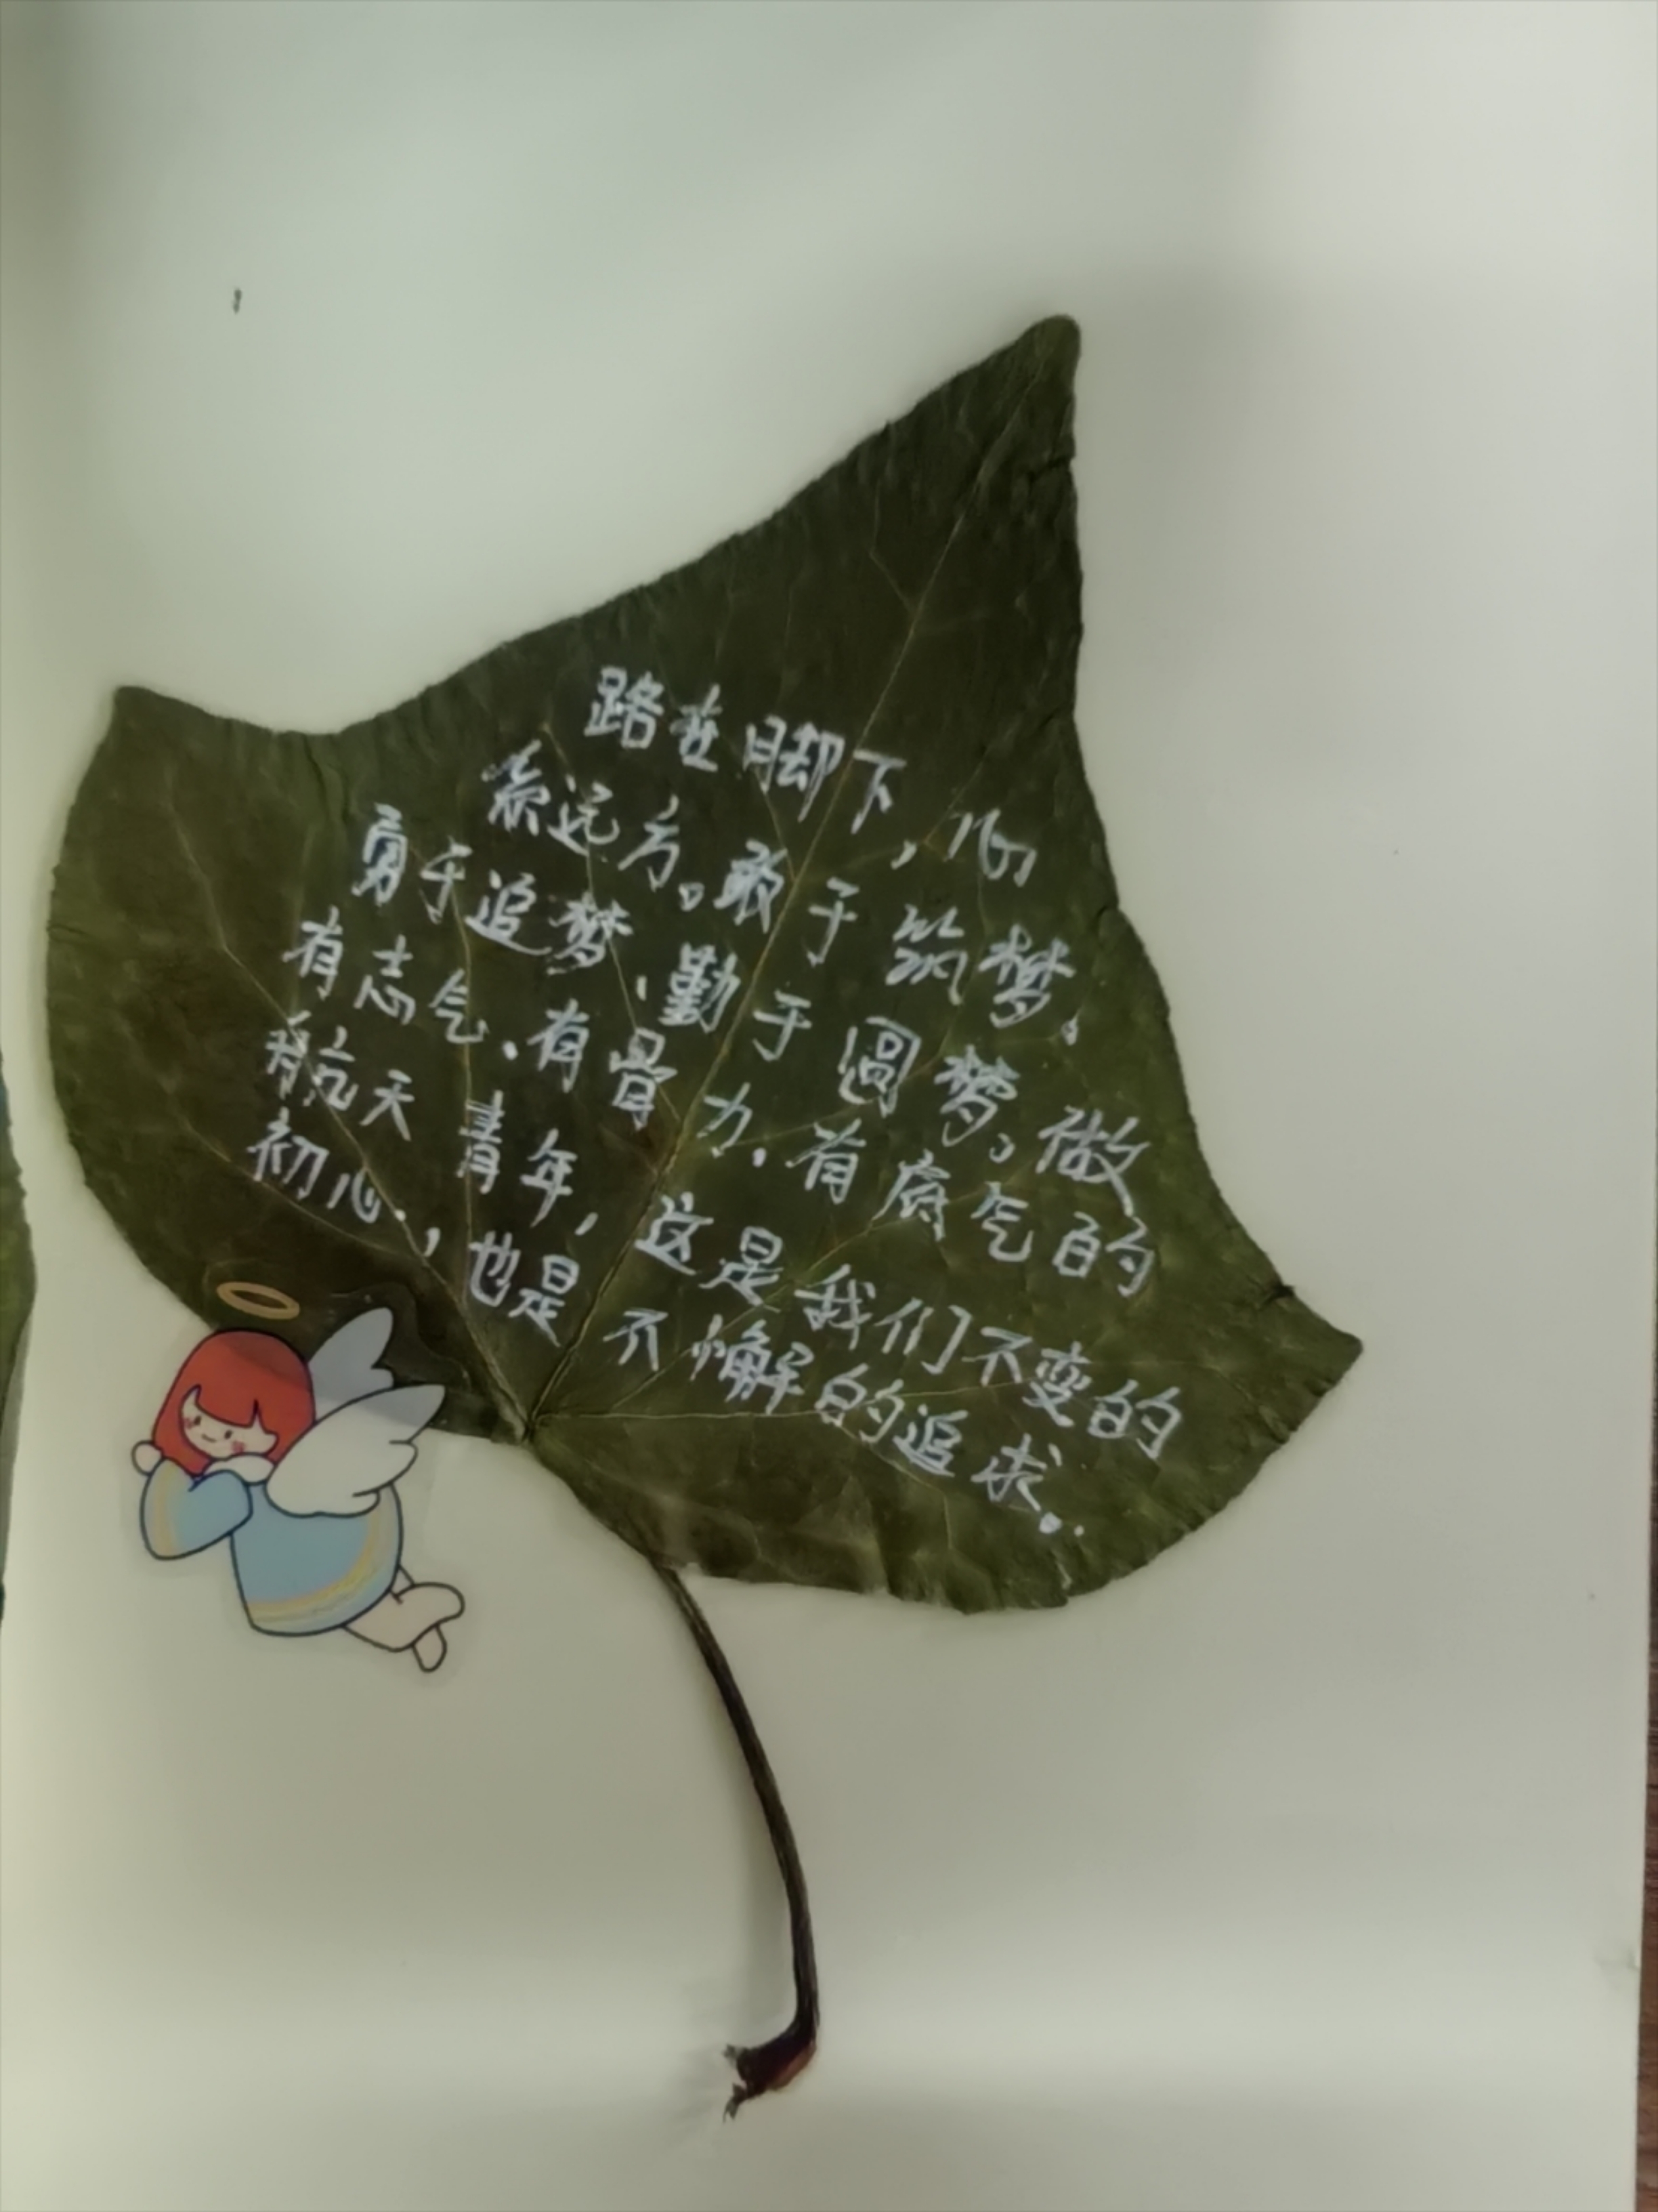 路在脚下，心
索远方。敢于筑梦、
勇于追梦、勤于圆梦。做
有志气、有骨力、有底气的
航天青年，这是我们不变的
初心，也是不懈的追求。